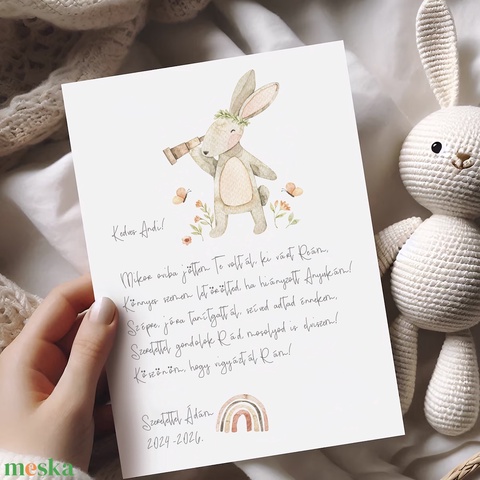 Kedves Andi!
Mikor oviba jöttem Te voltál, ki várt Reám,
Könnyes szemem letörölted ha hiányzott Anyukám!
Szépre, jóra tanítgattál, szíved adtad énnekem,
Szeretettel gondolok Rád, mosolyod is elviszem!
Köszönöm, hogy vigyáztál Rám!
Szeretettel Ádám
2024-2026.
meska